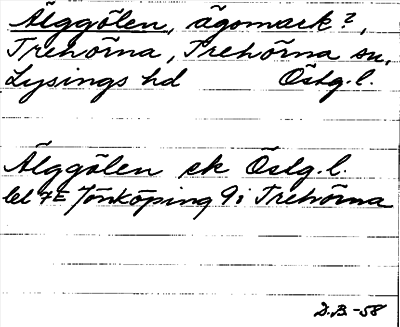 Älggölen, ägomark?,
Trehörna, Trehörna sn,
Lysings hd Östg.l.
Älggölen ek Östg.l.
bl 7E Jönköping 9i Trehörna
D.B.-58